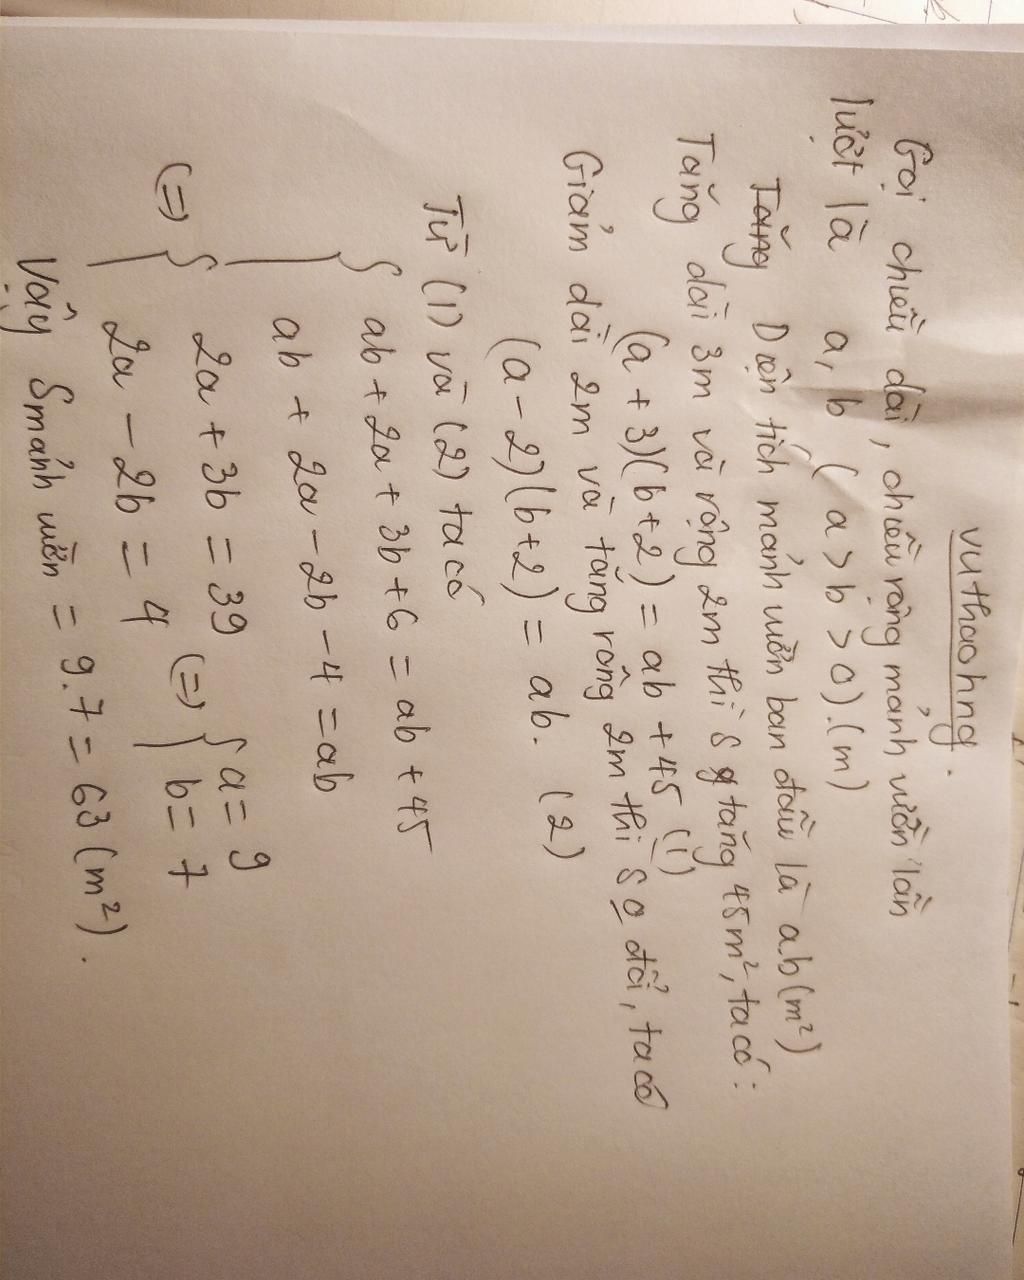 vuthaohng.
Gọi chiều dài, chiều rộng mảnh vườn lần
lượt là a, b (a > b > 0). (m)
Tăng Diện tích mảnh vườn ban đầu là a.b (m²)
Tăng dài 3m và rộng 2m thì S tăng 45m², ta có:
(a + 3)(b+2) = ab + 45 (1)
Giảm dài 2m và tăng rộng 2m thì S o đổi, ta có
(a - 2)(b+2) = ab. (2)
Từ (1) và (2) ta có
{ ab + 2a + 3b + 6 = ab + 45
ab + 2a - 2b - 4 = ab
(=) { 2a + 3b = 39 (=) { a = 9
2a - 2b = 4 b = 7
Vậy Smảnh vườn = 9.7 = 63 (m²).